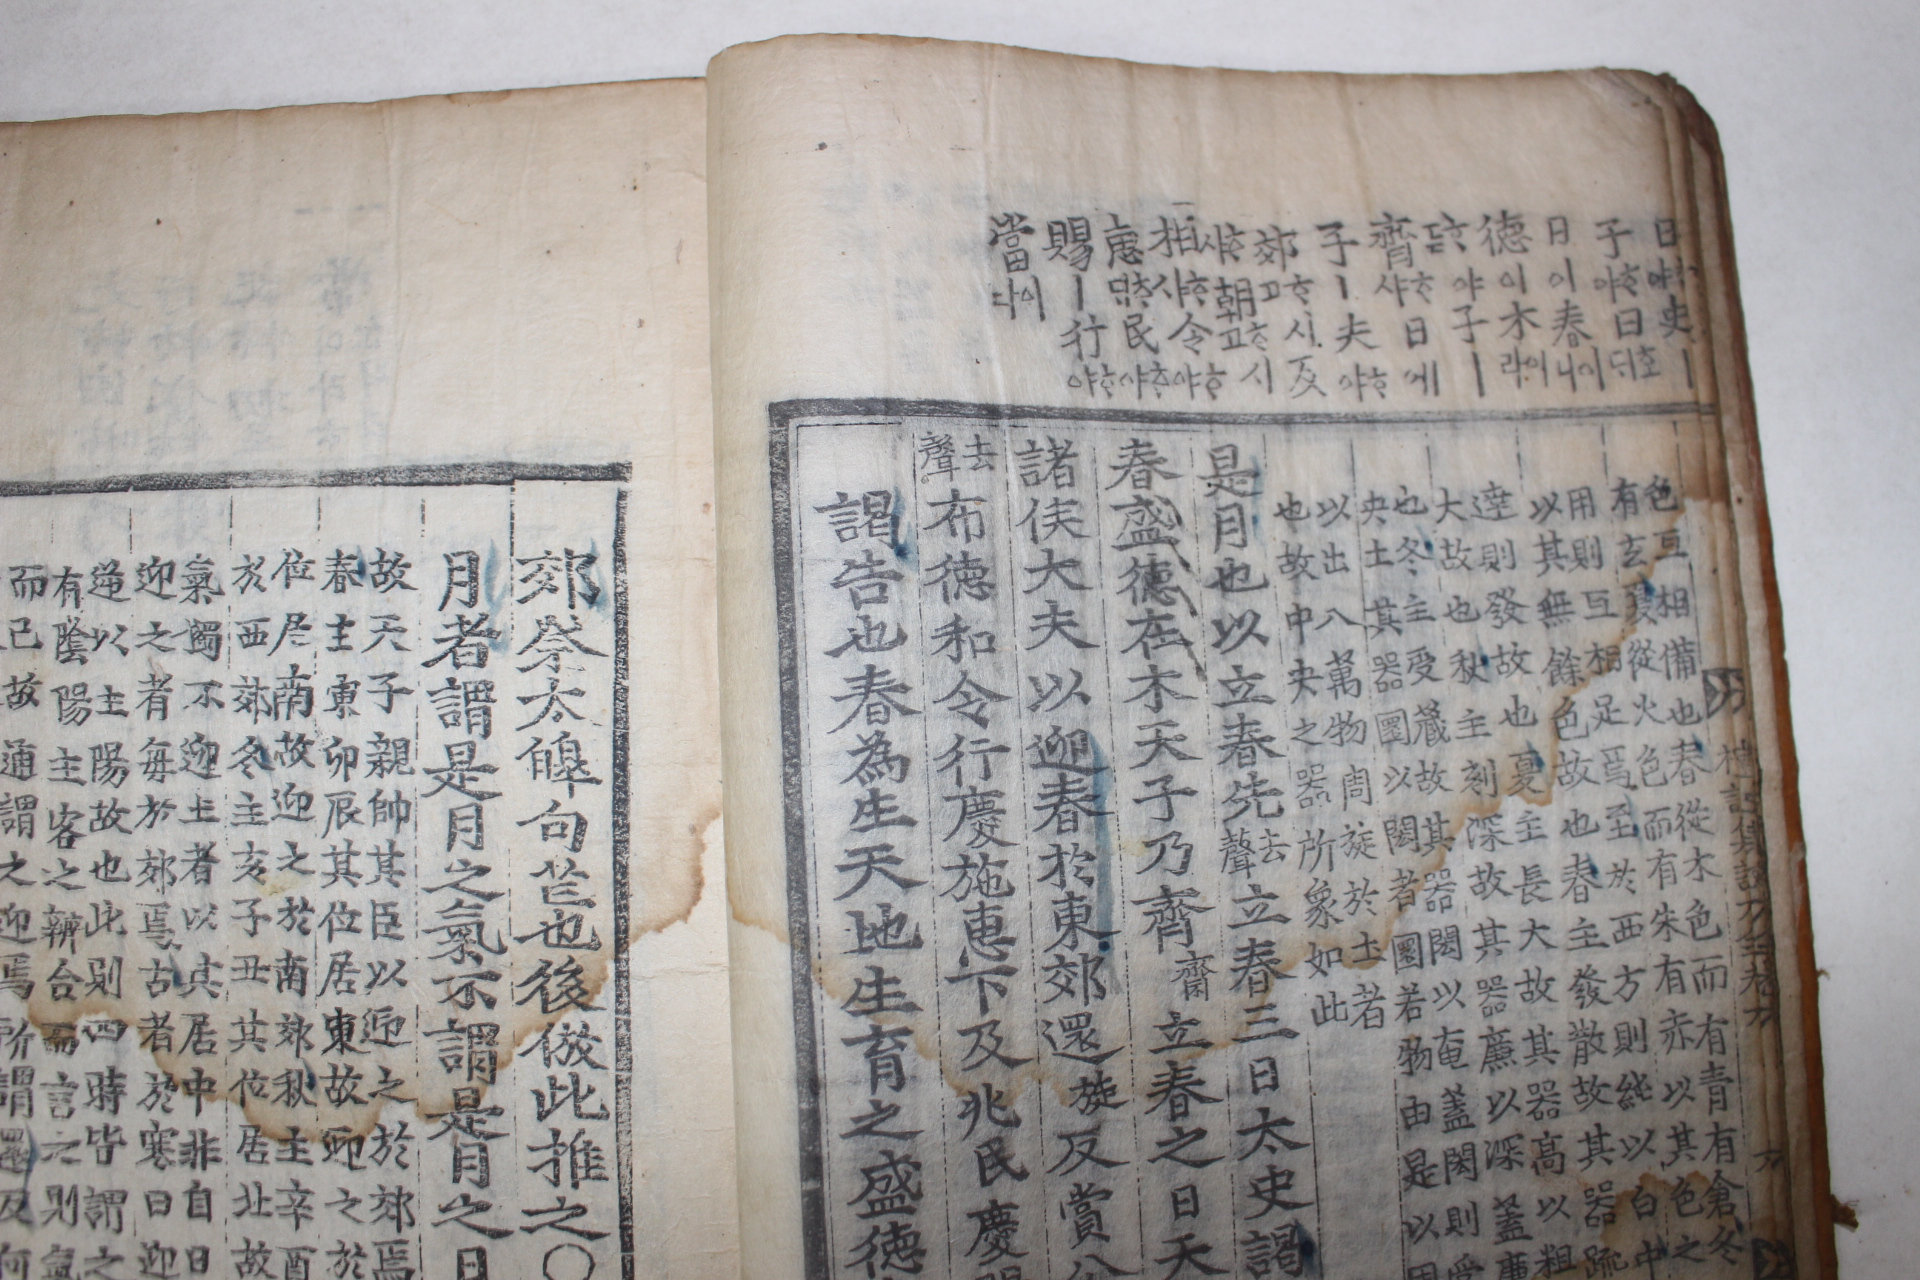 日ᄒᆞ야史ㅣ
子ᄒᆞ야日호ᄃᆡ
日이春이니
德이木이라
子ㅣ
齊ᄒᆞ샤日에
子ㅣ夫ᄒᆞ야
郊ᄒᆞ고시反
朝ᄒᆞ고시
相ᄒᆞ샤令ᄒᆞ야
惠民ᄒᆞ야
賜ㅣ行ᄒᆞ야
當이다
禮記集說大全卷六
六
色互相備也春從木色而有青有倉冬
有玄夏從火色而有朱有赤以其色之
用則互相足焉至於西方則純以白中
以其無餘色故也春主發散故其器疏
達則發故也夏主長大故其器高以粗
大故也秋主刻深故其器廉以深蓋廉
也冬主受藏故其器閎以奄蓋閎則受
央土其器圜以閎者圜若物由是以周
以出入萬物周旋於土者
也故中央之器所象如此
是月也以立春先去聲立春三日太史謁
春盛德在木天子乃齊齋立春之日天
諸侯大夫以迎春於東郊還旋反賞公
去聲布德和令行慶施惠下及兆民慶
謁告也春為生天地生育之盛德
郊祭太皥句芒也後倣此推之○
月者謂是月之氣不謂是月之日
故天子親帥其臣以迎之於郊焉
春主東卯辰其位居東故迎之於
位居南故迎之於南郊秋主辛酉
於西郊冬主亥子丑其位居北故
氣獨不迎土者以其居中非自日
迎之者每於郊焉古者於寒曰迎
逆以主陽故也此則四時皆謂之
有陰陽主客之辨合而言之則氣
而已故通謂之迎焉所謂還反何